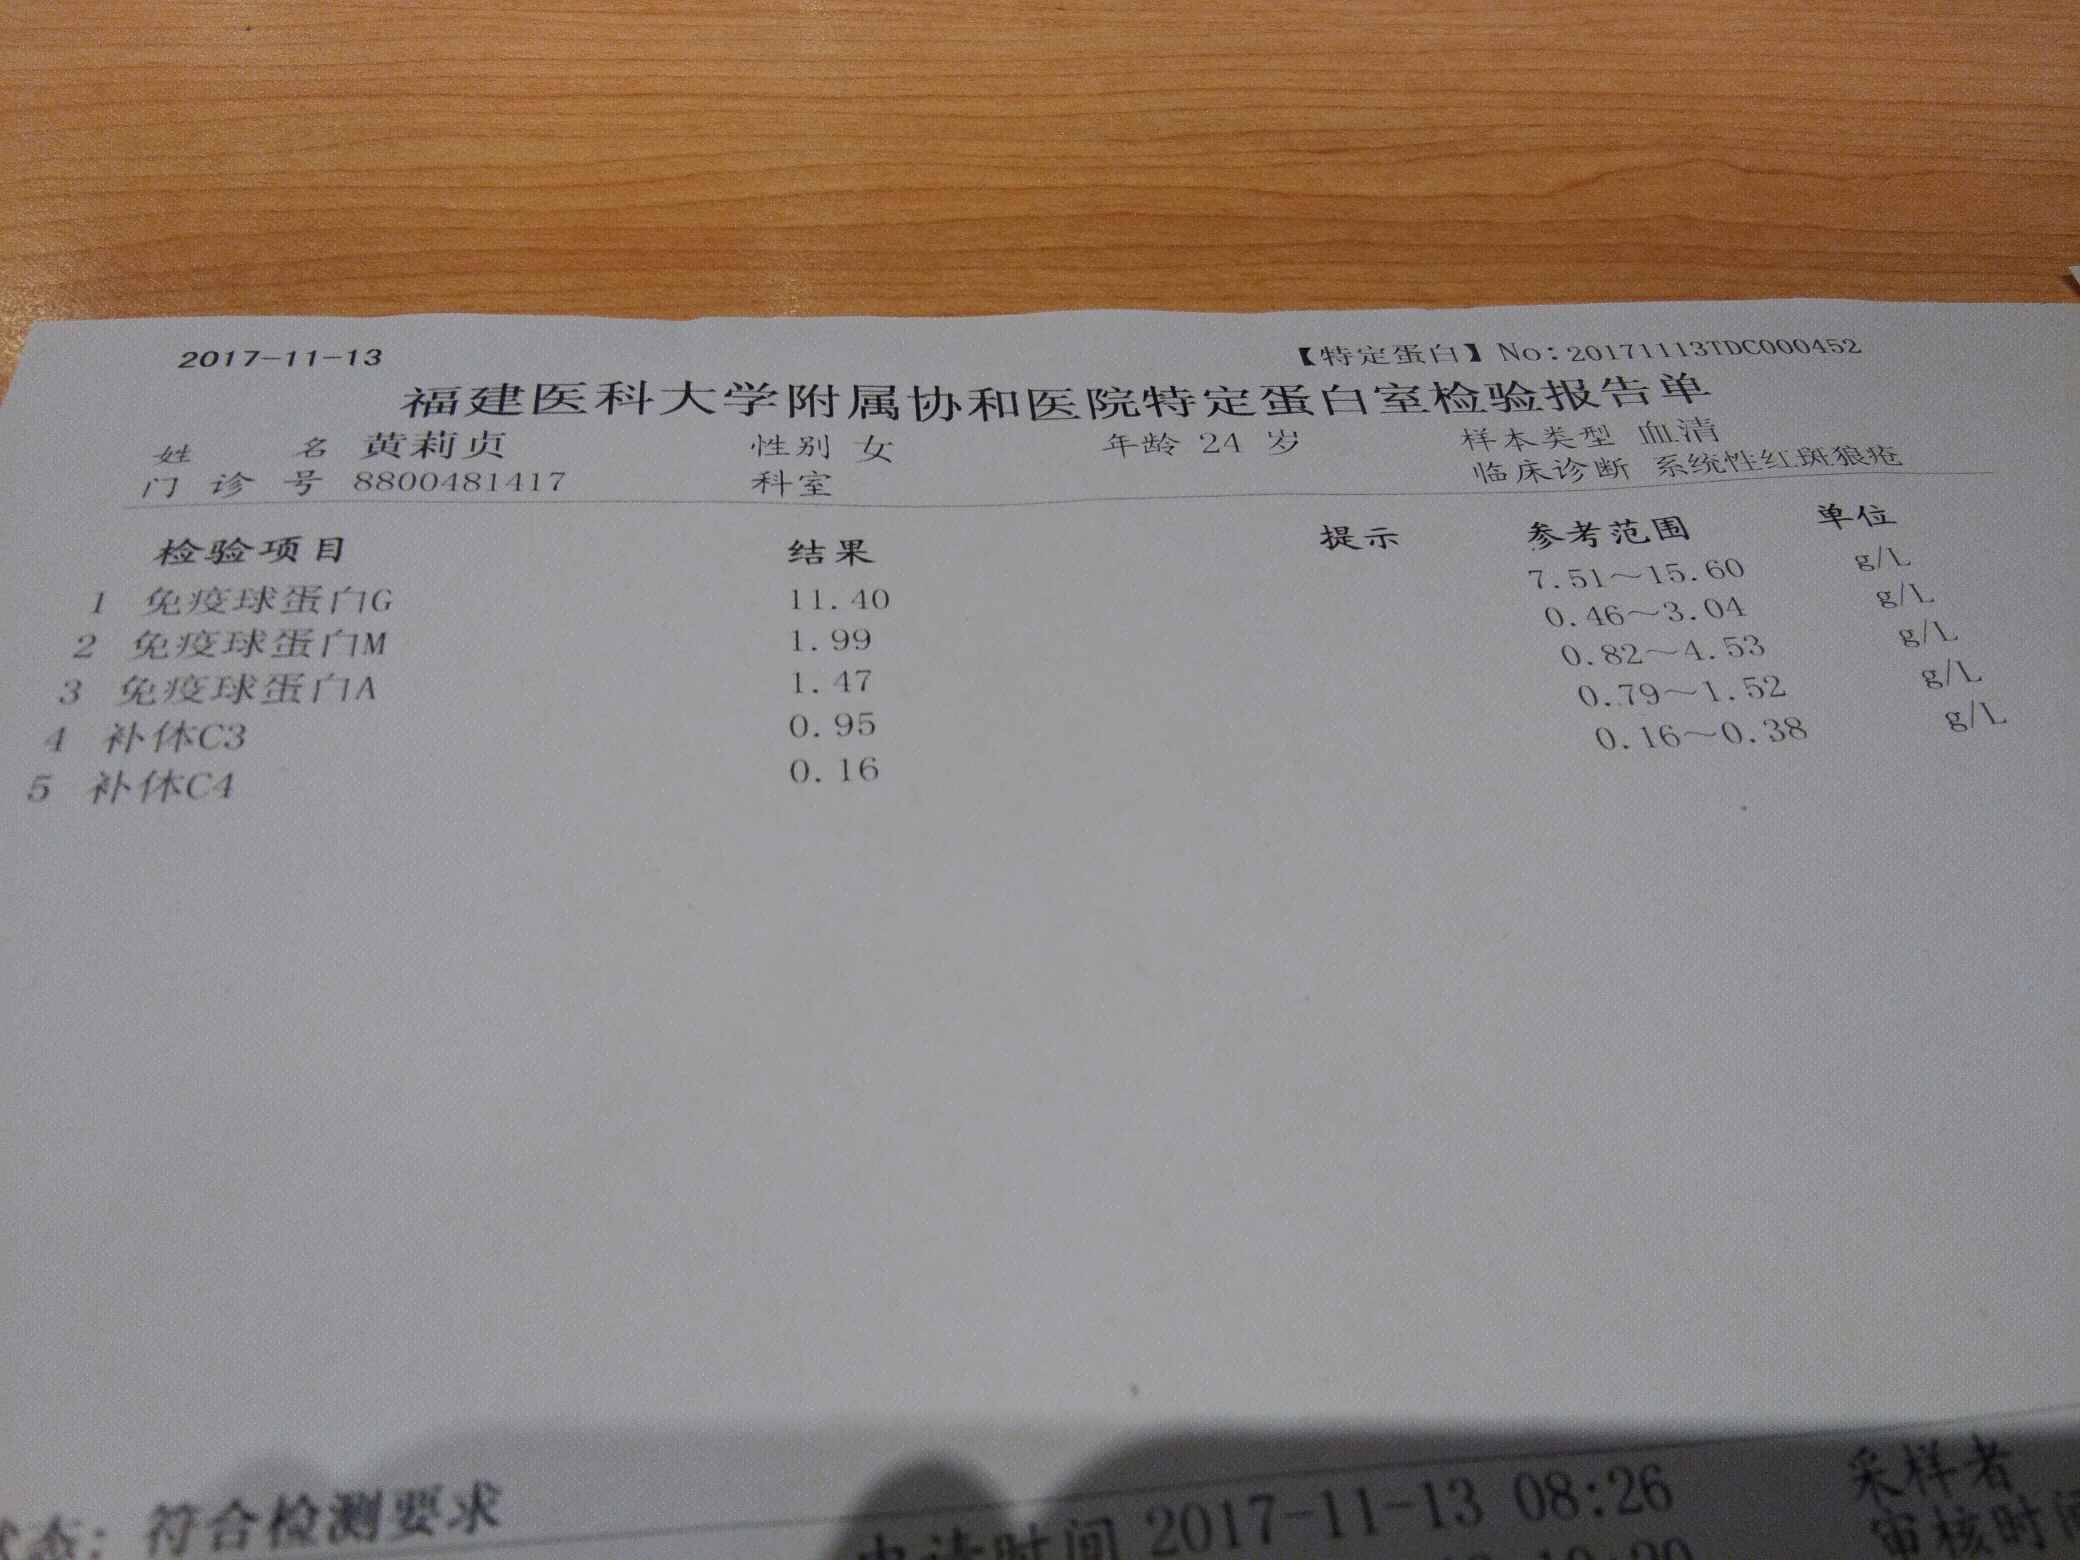 2017-11-13 【特定蛋白】No:20171113TDC000452
福建医科大学附属协和医院特定蛋白室检验报告单
姓 名 黄莉贞 性别 女 年龄 24 岁 样本类型 血清
门 诊 号 8800481417 科室 临床诊断 系统性红斑狼疮
检验项目 结果 提示 参考范围 单位
1 免疫球蛋白G 11.40 7.51～15.60 g/L
2 免疫球蛋白M 1.99 0.46～3.04 g/L
3 免疫球蛋白A 1.47 0.82～4.53 g/L
4 补体C3 0.95 0.79～1.52 g/L
5 补体C4 0.16 0.16～0.38 g/L
状态: 符合检测要求 申请时间 2017-11-13 08:26 采样者
审核时间